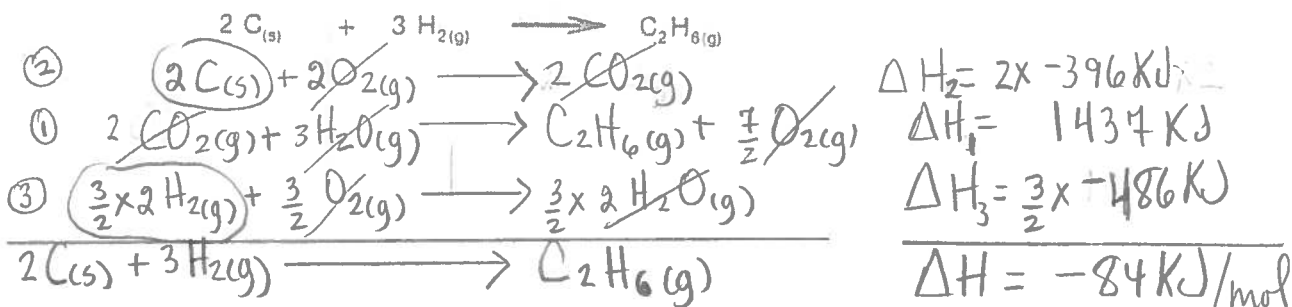 2 C(s) + 3 H2(g) → C2H6(g)
② 2C(s) + 2O2(g) → 2 CO2(g) ΔH2 = 2x -396 KJ
① 2 CO2(g) + 3H2O(g) → C2H6(g) + 7/2 O2(g) ΔH1 = 1437 KJ
③ 3/2 x 2 H2(g) + 3/2 O2(g) → 3/2 x 2 H2O(g) ΔH3 = 3/2 x -486 KJ
2C(s) + 3H2(g) → C2H6(g) ΔH = -84 KJ/mol